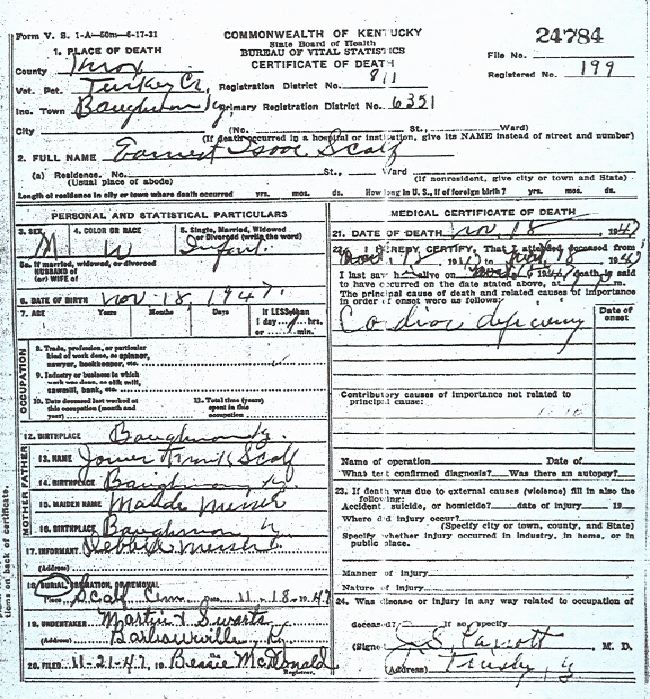 Form V. S. 1-A—50m—6-17-31
COMMONWEALTH OF KENTUCKY
State Board of Health
BUREAU OF VITAL STATISTICS
CERTIFICATE OF DEATH
24784
File No.
Registered No. 199
1. PLACE OF DEATH
County Knox
Vot. Pct. Turkey Cr. Registration District No. 811
Inc. Town Baughman Ky Primary Registration District No. 6351
City (No. St., Ward)
(If death occurred in a hospital or institution, give its NAME instead of street and number)
2. FULL NAME Earnest Isaac Scalf
(a) Residence. No. St., Ward
(Usual place of abode) (If nonresident, give city or town and State)
Length of residence in city or town where death occurred yrs. mos. ds. How long in U. S., if of foreign birth? yrs. mos. ds.
PERSONAL AND STATISTICAL PARTICULARS
3. SEX 4. COLOR OR RACE 5. Single, Married, Widowed
or Divorced (write the word)
M W Infant.
5a. If married, widowed, or divorced
HUSBAND of
(or) WIFE of
6. DATE OF BIRTH Nov. 18, 1947.
7. AGE Years Months Days If LESS than
1 day hrs.
or min.
OCCUPATION
8. Trade, profession, or particular
kind of work done, as spinner,
sawyer, bookkeeper, etc.
9. Industry or business in which
work was done, as silk mill,
sawmill, bank, etc.
10. Date deceased last worked at
this occupation (month and
year)
11. Total time (years)
spent in this
occupation
12. BIRTHPLACE Baughman Ky.
FATHER
13. NAME Scalf
14. BIRTHPLACE Baughman Ky
MOTHER
15. MAIDEN NAME Maude Messer
16. BIRTHPLACE Baughman Ky
17. INFORMANT Debbie Messer
(Address)
18. BURIAL, CREMATION, OR REMOVAL
Place Scalf Cem Date 11-18-1947
19. UNDERTAKER Martin & Swartz
(Address) Barbourville, Ky
20. FILED 11-21-47, 19 Bessie McDonald
Registrar.
MEDICAL CERTIFICATE OF DEATH
21. DATE OF DEATH Nov 18, 1947
22. I HEREBY CERTIFY, That I attended deceased from
Nov. 18, 1947 to Nov. 18, 1947
I last saw h alive on 1947 death is said
to have occurred on the date stated above, at m.
The principal cause of death and related causes of importance
in order of onset were as follows:
Date of
onset
Cardiac deficiency
Contributory causes of importance not related to
principal cause:
Name of operation Date of
What test confirmed diagnosis? Was there an autopsy?
23. If death was due to external causes (violence) fill in also the
following:
Accident, suicide, or homicide? date of injury 19
Where did injury occur?
(Specify city or town, county, and State)
Specify whether injury occurred in industry, in home, or in
public place.
Manner of injury
Nature of injury
24. Was disease or injury in any way related to occupation of
deceased? If so, specify
(Signed) J. S. Parrott M. D.
(Address)
tions on back of certificate.